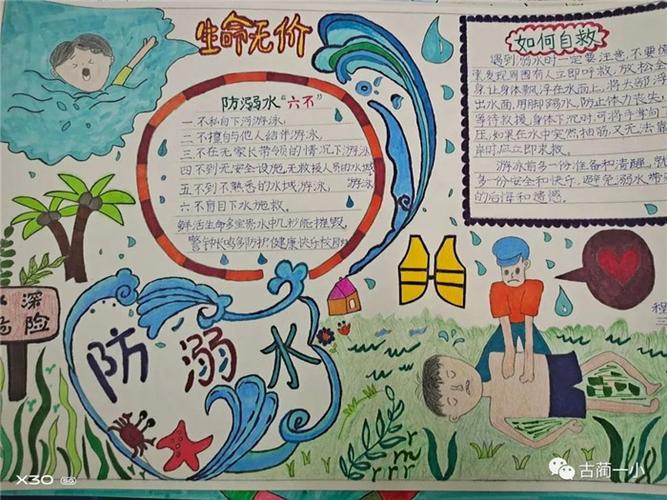 生命无价
防溺水“六不”
一不私自下河游泳，
二不擅自与他人结伴游泳，
三不在无家长带领的情况下游泳
四不到无安全设施，无救援人员的水域
五不到不熟悉的水域游泳， 游泳
六不盲目下水施救。
鲜活生命多宝贵水中几秒能摧毁，
警钟长鸣多防护健康快乐校园
如何自救
遇到溺水时一定要注意，不要
来发现周围有人立即呼救，放松全
身让身体飘浮在水面上，将头部浮
出水面，用脚踢水，防止体力丧失，
等待救援，身体下沉时，可将手掌向
压，如果在水中突然抽筋，又无法靠
岸时，应立即求救。
游泳前多一份准备和清醒，就
多一份安全和快乐，避免溺水带
的后悔和遗憾。
深
险
防溺水
程
三
X30 5G
古蔺一小